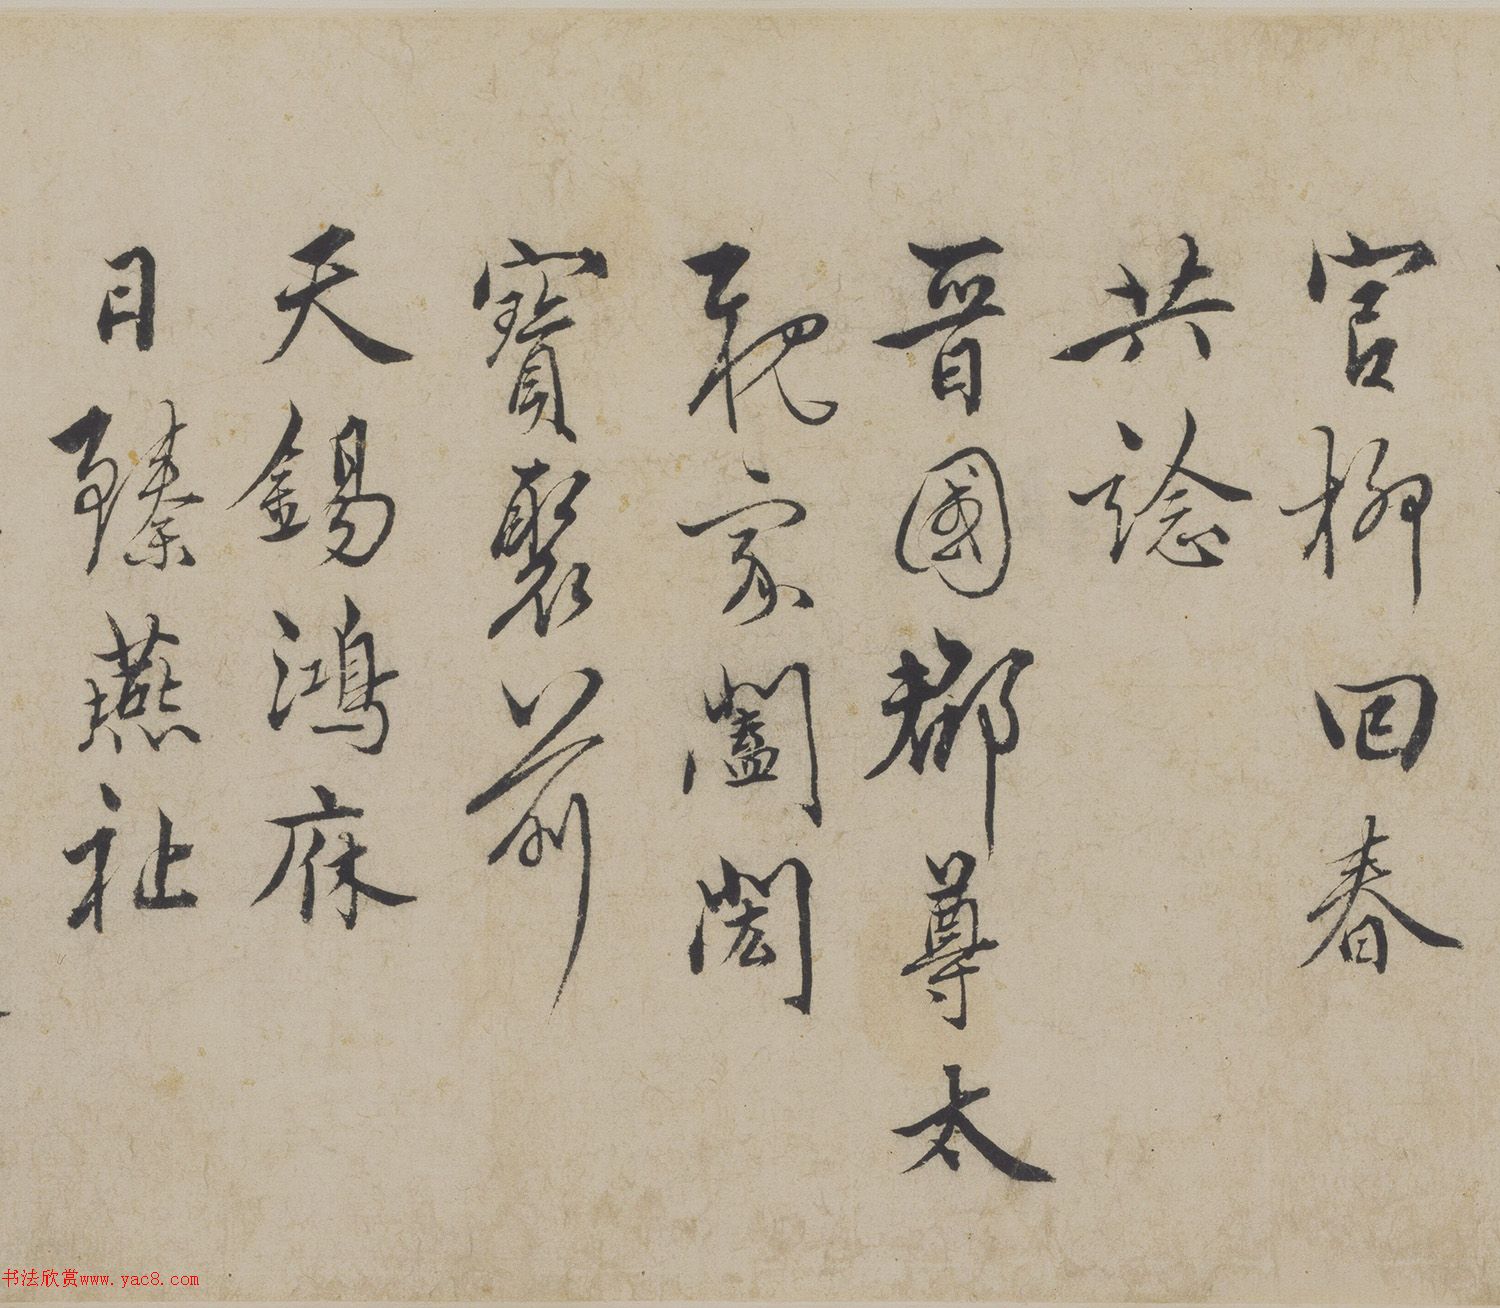 官柳回春
共諗
晉國郡尊太
親家闔閎
寶聚前
天錫鴻庥
日臻燕祉
书法欣赏www.yac8.com